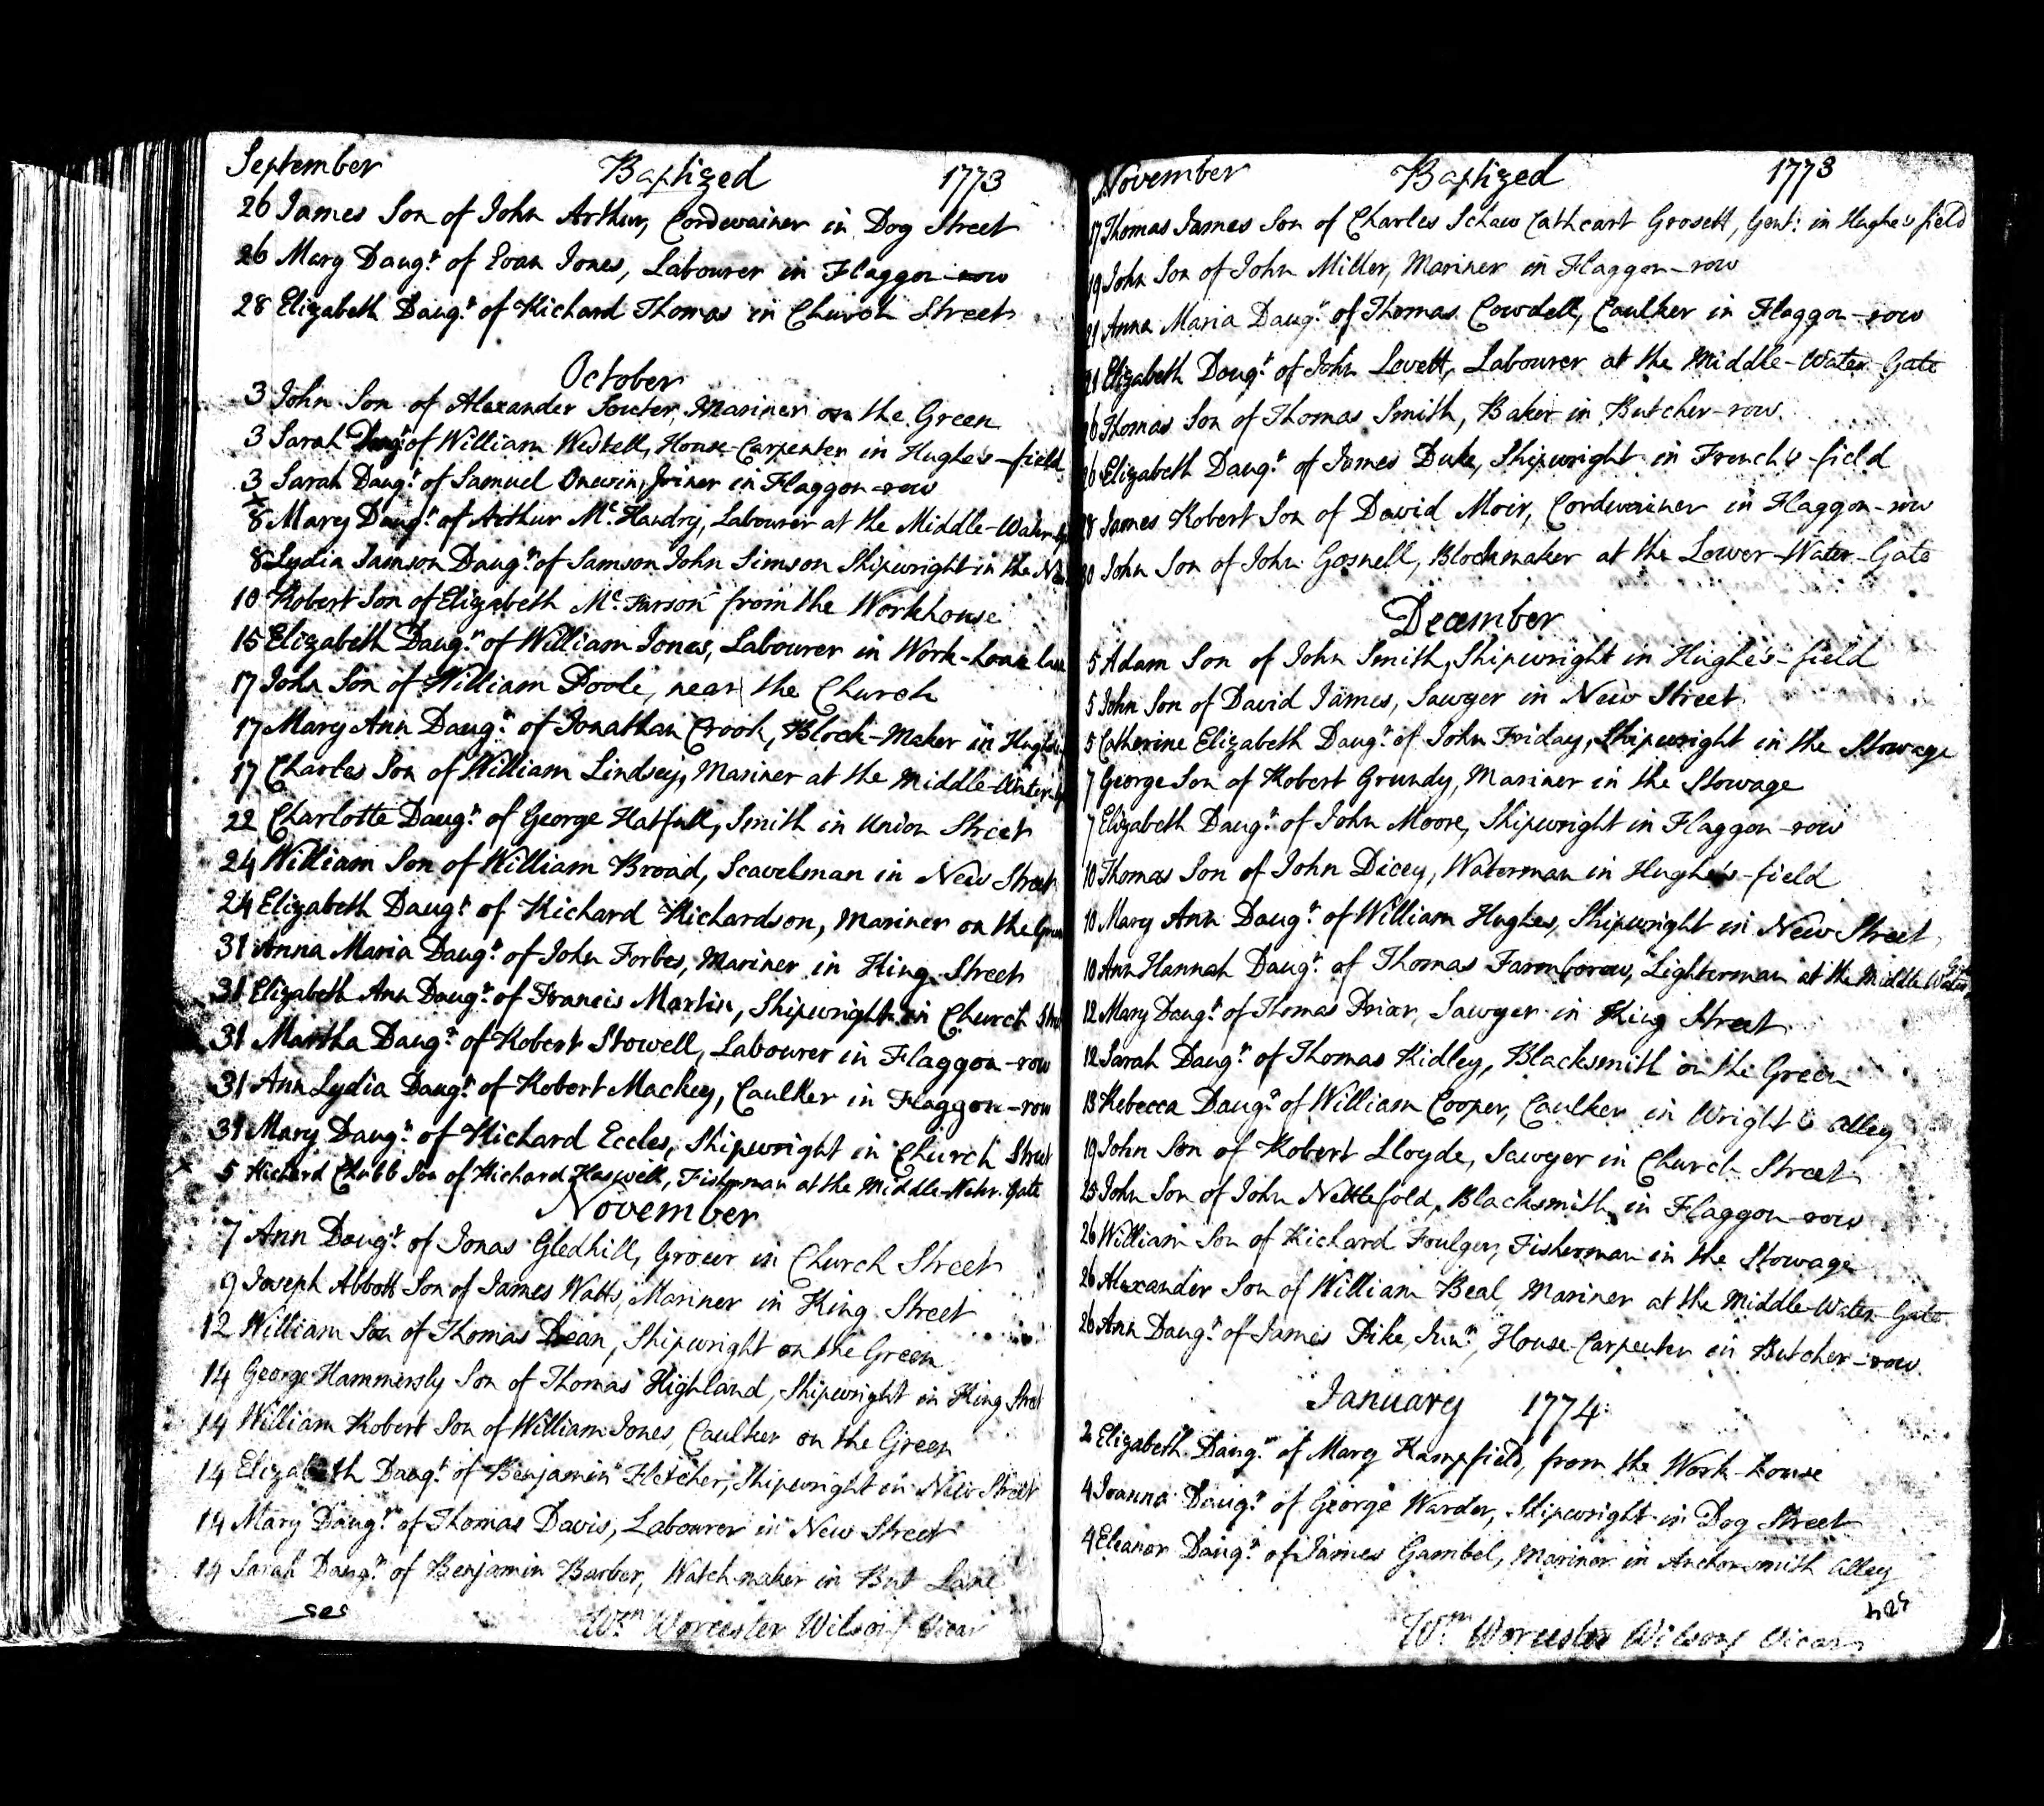 September Baptized 1773
26 James Son of John Arthur, Cordwainer in Dog Street
26 Mary Daugr. of Evan Jones, Labourer in Flaggon-row
28 Elizabeth Daugr. of Richard Thomas in Church Street
October
3 John Son of Alexander Souter, Mariner on the Green
3 Sarah Daugr. of William Westell, House-Carpenter in Hughe's-field
3 Sarah Daugr. of Samuel Unwin, Joiner in Flaggon-row
8 Mary Daugr. of Arthur Mc. Handry, Labourer at the Middle-Water
8 Lydia Samson Daugr. of Samson John Simson Shipwright in the
10 Robert Son of Elizabeth Mc. Farson from the Workhouse
15 Elizabeth Daugr. of William Jones, Labourer in Work-house lane
17 John Son of William Poole, near the Church
17 Mary Ann Daugr. of Jonathan Crook, Block-Maker in
17 Charles Son of William Lindsey, Mariner at the Middle-Water
22 Charlotte Daugr. of George Hatfull, Smith in Union Street
24 William Son of William Broad, Scavelman in New Street
24 Elizabeth Daugr. of Richard Richardson, Mariner on the Green
31 Anna Maria Daugr. of John Forbes, Mariner in King Street
31 Elizabeth Ann Daugr. of Francis Martin, Shipwright in Church
31 Martha Daugr. of Robert Stowell, Labourer in Flaggon-row
31 Ann Lydia Daugr. of Robert Mackey, Caulker in Flaggon-row
31 Mary Daugr. of Richard Eccles, Shipwright in Church Street
5 Richard Chubb Son of Richard Haswell, Fisherman at the Middle-Water-Gate
November
7 Ann Daugr. of Jonas Gledhill, Grocer in Church Street
9 Joseph Abbott Son of James Watts, Mariner in King Street
12 William Son of Thomas Dean, Shipwright on the Green
14 George Hammersly Son of Thomas Highland, Shipwright in King Street
14 William Robert Son of William Jones, Caulker on the Green
14 Elizabeth Daugr. of Benjamin Fletcher, Shipwright in New Street
14 Mary Daugr. of Thomas Davis, Labourer in New Street
14 Sarah Daugr. of Benjamin Barber, Watchmaker in But Lane
Wm. Worcester Wilson Vicar
November Baptized 1773
17 Thomas James Son of Charles Schaw Cathcart Grosett, Gent: in Hughe's field
19 John Son of John Miller, Mariner in Flaggon-row
21 Anna Maria Daugr. of Thomas Cowdell, Caulker in Flaggon-row
21 Elizabeth Daugr. of John Levett, Labourer at the Middle-Water-Gate
26 Thomas Son of Thomas Smith, Baker in Butcher-row
26 Elizabeth Daugr. of James Duke, Shipwright in French's-field
28 James Robert Son of David Moir, Cordwainer in Flaggon-row
30 John Son of John Gosnell, Blockmaker at the Lower-Water-Gate
December
5 Adam Son of John Smith, Shipwright in Hughe's-field
5 John Son of David James, Sawyer in New Street
5 Catherine Elizabeth Daugr. of John Friday, Shipwright in the Stowage
7 George Son of Robert Grundy, Mariner in the Stowage
7 Elizabeth Daugr. of John Moore, Shipwright in Flaggon-row
10 Thomas Son of John Dicey, Waterman in Hughe's-field
10 Mary Ann Daugr. of William Hughes, Shipwright in New Street
10 Ann Hannah Daugr. of Thomas Farmborow, Lighterman at the Middle Water Gate
12 Mary Daugr. of Thomas Friar, Sawyer in King Street
12 Sarah Daugr. of Thomas Ridley, Blacksmith on the Green
13 Rebecca Daugr. of William Cooper, Caulker in Wright's alley
19 John Son of Robert Lloyde, Sawyer in Church Street
25 John Son of John Nettlefold, Blacksmith in Flaggon-row
26 William Son of Richard Foulger, Fisherman in the Stowage
26 Alexander Son of William Beal, Mariner at the Middle-Water-Gate
26 Ann Daugr. of James Pike, Junr., House-Carpenter in Butcher-row
January 1774
2 Elizabeth Daugr. of Mary Hampfield, from the Work-house
4 Joanna Daugr. of George Warder, Shipwright in Dog Street
4 Eleanor Daugr. of James Gambel, Mariner in Anchorsmith alley
Wm. Worcester Wilson Vicar